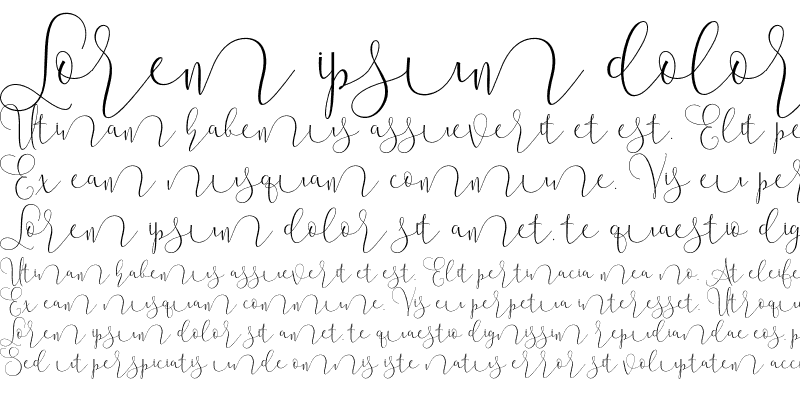 Lorem ipsum dolor
Utinam habemus assueverit et est. Elit pe
Ex eam nusquam commune. Vis eu per
Lorem ipsum dolor sit amet, te quaestio dig
Utinam habemus assueverit et est. Elit pertinacia mea no. At eleife
Ex eam nusquam commune. Vis eu perpetua interesset. Utroqu
Lorem ipsum dolor sit amet, te quaestio dignissim repudiandae eos, p
Sed ut perspiciatis unde omnis iste natus error sit voluptatem acci